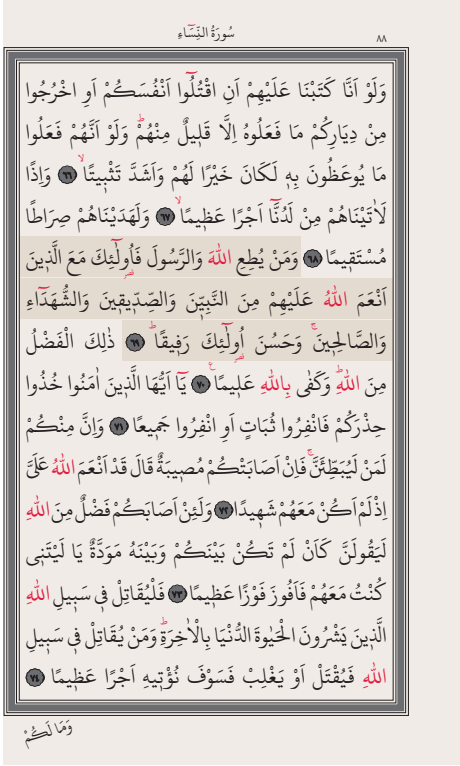 سُورَةُ النِّسَاءِ
٨٨
وَلَوْ اَنَّا كَتَبْنَا عَلَيْهِمْ اَنِ اقْتُلُٓوا اَنْفُسَكُمْ اَوِ اخْرُجُوا
مِنْ دِيَارِكُمْ مَا فَعَلُوهُ اِلَّا قَلِيلٌ مِنْهُمْۜ وَلَوْ اَنَّهُمْ فَعَلُوا
مَا يُوعَظُونَ بِهٖ لَكَانَ خَيْرًا لَهُمْ وَاَشَدَّ تَثْبٖيتًاۙ ﴿٦٦﴾ وَاِذًا
لَاٰتَيْنَاهُمْ مِنْ لَدُنَّٓا اَجْرًا عَظٖيمًاۙ ﴿٦٧﴾ وَلَهَدَيْنَاهُمْ صِرَاطًا
مُسْتَقٖيمًا ﴿٦٨﴾ وَمَنْ يُطِعِ اللّٰهَ وَالرَّسُولَ فَاُولٰٓئِكَ مَعَ الَّذٖينَ
اَنْعَمَ اللّٰهُ عَلَيْهِمْ مِنَ النَّبِيّٖنَ وَالصِّدّٖيقٖينَ وَالشُّهَدَٓاءِ
وَالصَّالِحٖينَۚ وَحَسُنَ اُولٰٓئِكَ رَفٖيقًاۜ ﴿٦٩﴾ ذٰلِكَ الْفَضْلُ
مِنَ اللّٰهِۜ وَكَفٰى بِاللّٰهِ عَلٖيمًاࣖ ﴿٧٠﴾ يَٓا اَيُّهَا الَّذٖينَ اٰمَنُوا خُذُوا
حِذْرَكُمْ فَانْفِرُوا ثُبَاتٍ اَوِ انْفِرُوا جَمٖيعًا ﴿٧١﴾ وَاِنَّ مِنْكُمْ
لَمَنْ لَيُبَطِّئَنَّۚ فَاِنْ اَصَابَتْكُمْ مُصٖيبَةٌ قَالَ قَدْ اَنْعَمَ اللّٰهُ عَلَيَّ
اِذْ لَمْ اَكُنْ مَعَهُمْ شَهٖيدًا ﴿٧٢﴾ وَلَئِنْ اَصَابَكُمْ فَضْلٌ مِنَ اللّٰهِ
لَيَقُولَنَّ كَاَنْ لَمْ تَكُنْ بَيْنَكُمْ وَبَيْنَهُ مَوَدَّةٌ يَا لَيْتَنٖى
كُنْتُ مَعَهُمْ فَاَفُوزَ فَوْزًا عَظٖيمًا ﴿٧٣﴾ فَلْيُقَاتِلْ فٖى سَبٖيلِ اللّٰهِ
الَّذٖينَ يَشْرُونَ الْحَيٰوةَ الدُّنْيَا بِالْاٰخِرَةِۜ وَمَنْ يُقَاتِلْ فٖى سَبٖيلِ
اللّٰهِ فَيُقْتَلْ اَوْ يَغْلِبْ فَسَوْفَ نُؤْتٖيهِ اَجْرًا عَظٖيمًا ﴿٧٤﴾
وَمَا لَكُمْ